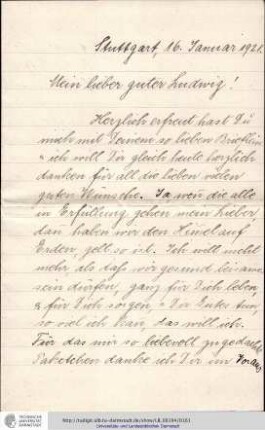 Stuttgart, 16. Januar 1921.
Mein lieber guter Ludwig!
Herzlich erfreut hast Du
mich mit Deinem so lieben Brieflein
u ich will Dir gleich heute herzlich
danken für all die lieben vielen
guten Wünsche. Ja wen̅ die alle
in Erfüllung gehen mein Lieber,
dan̅ haben wir den Him̅el auf
Erden, gell so ist. Ich will nicht
mehr, als daß wir gesund beisam̅en
sein dürfen, ganz für Dich leben,
u für Dich sorgen, u Dir Gutes tun,
so viel ich kan̅, das will ich.
Für das mir so liebevoll zugedachte
Paketchen danke ich Dir im Voraus,
TECHNISCHE
UNIVERSITÄT
DARMSTADT
Universitäts- und Landesbibliothek Darmstadt